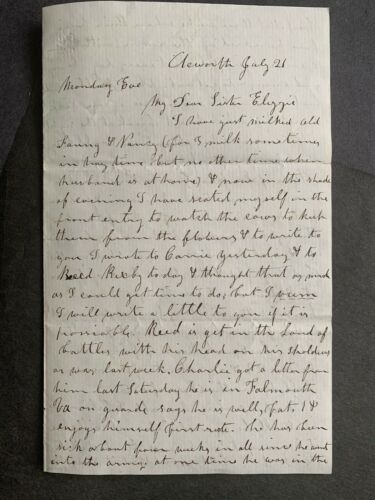 Acworth July 21
Monday Eve
My Dear Sister Elizzie
I have just milked old
Fanny & Nancy (for I milk sometimes
in hay time but no other time when
husband is at home) & now in the shade
of evening I have seated myself in the
front entry to watch the cows to keep
them from the flowers & to write to
you I wrote to Carrie yesterday & to
Reed to day & thought that as much
as I could get time to do, but I vum
I will write a little to you if it is
Reed is yet in the Land of
battles with his head on his sholders
or was last week, Charlie got a letter from
him last Saturday he is in Falmouth
Va on guarde says he is well, fat, 1 &
enjoys himself first rate. He has been
sick about four weeks in all since he went
into the army. at one time he was in the